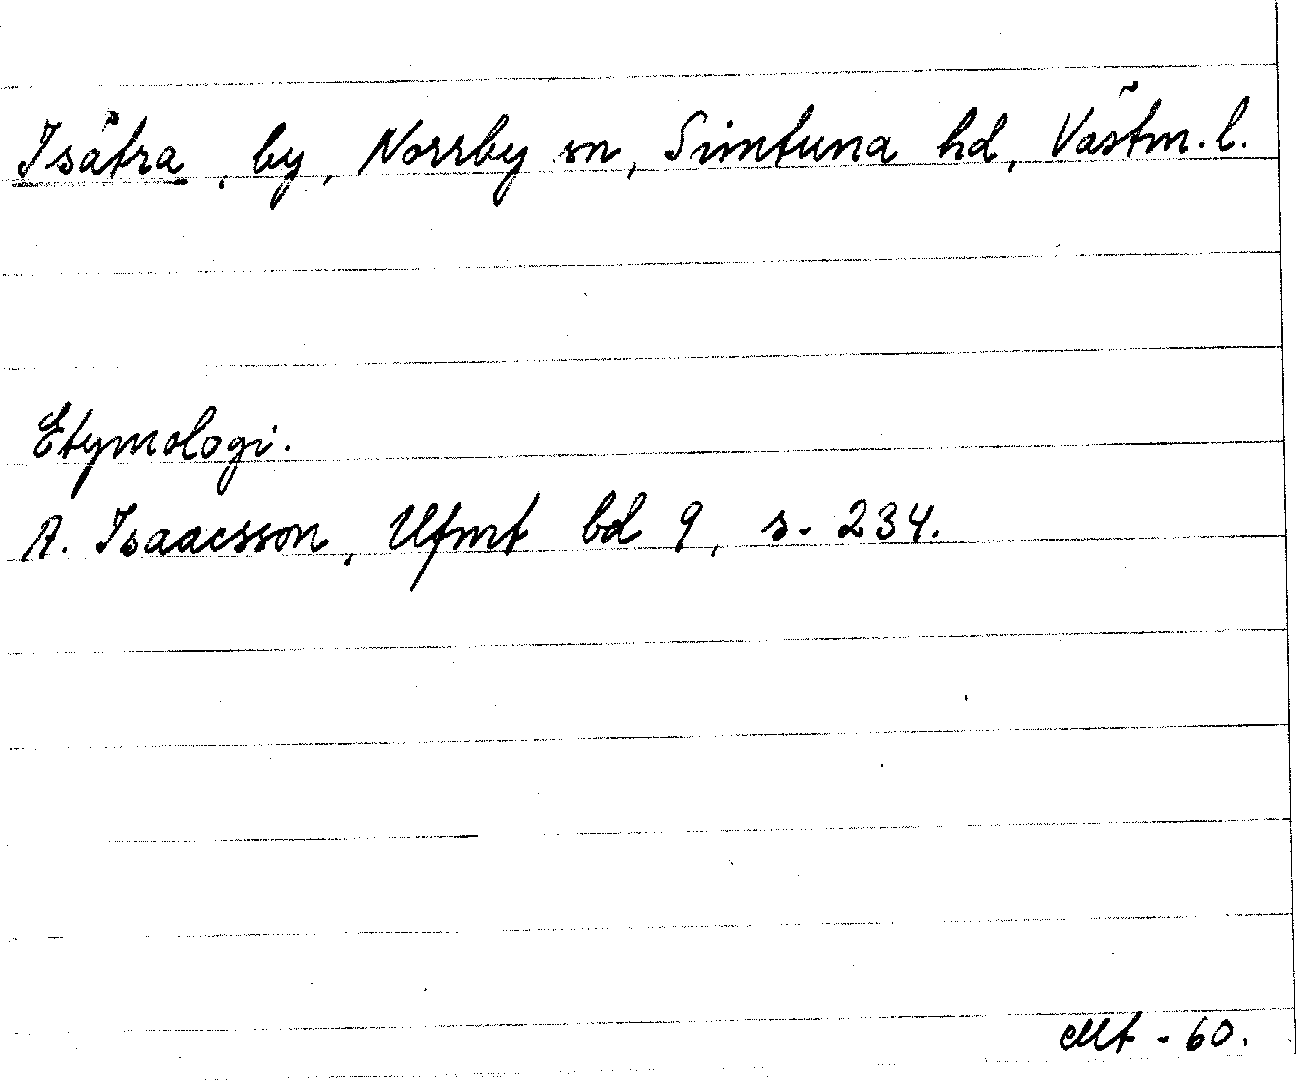 Isätra, by, Norrby sn, Simtuna hd, Västm. l.
Etymologi.
A. Isaacsson, Ufmt bd 9, s. 234.
Mt - 60.